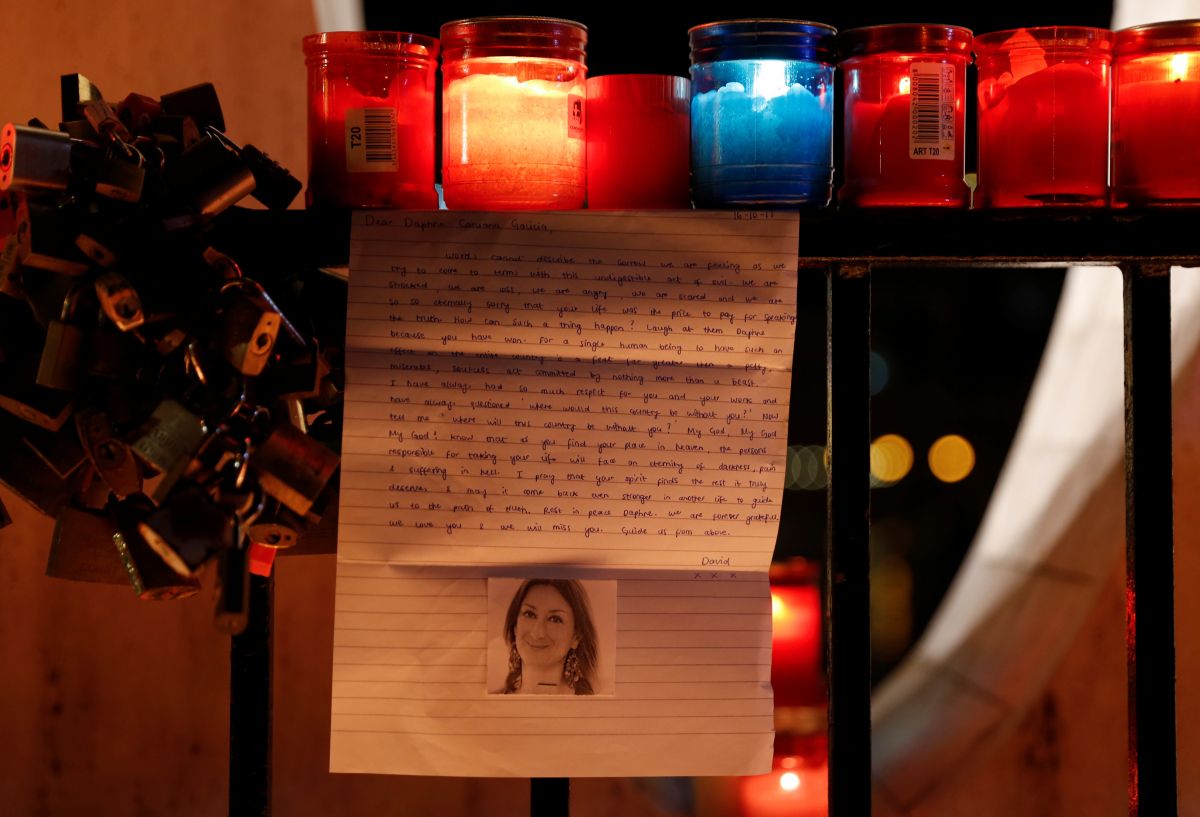 T20
ART T20
16-10-17
Dear Daphne Caruana Galizia,
Words cannot describe the sorrow we are feeling as we
try to come to terms with this undigestible act of evil. We are
shocked, we are lost, we are angry, we are scared and we are
so so eternally sorry that your life was the price to pay for speaking
the truth. How can such a thing happen? Laugh at them Daphne
because you have won. For a single human being to have such an
effect on the entire country is a feat far greater then a petty,
miserable, soulless act committed by nothing more than a beast.
I have always had so much respect for you and your work and
have always questioned 'where would this country be without you?' Now
tell me 'where will this country be without you?' My God, My God
My God! know that as you find your place in heaven, the persons
responsible for taking your life will face an eternity of darkness, pain
& suffering in hell. I pray that your spirit finds the rest it truly
deserves & may it come back even stronger in another life to guide
us to the path of truth. Rest in peace Daphne. We are forever grateful,
we love you & we will miss you. Guide us from above.
David
x x x